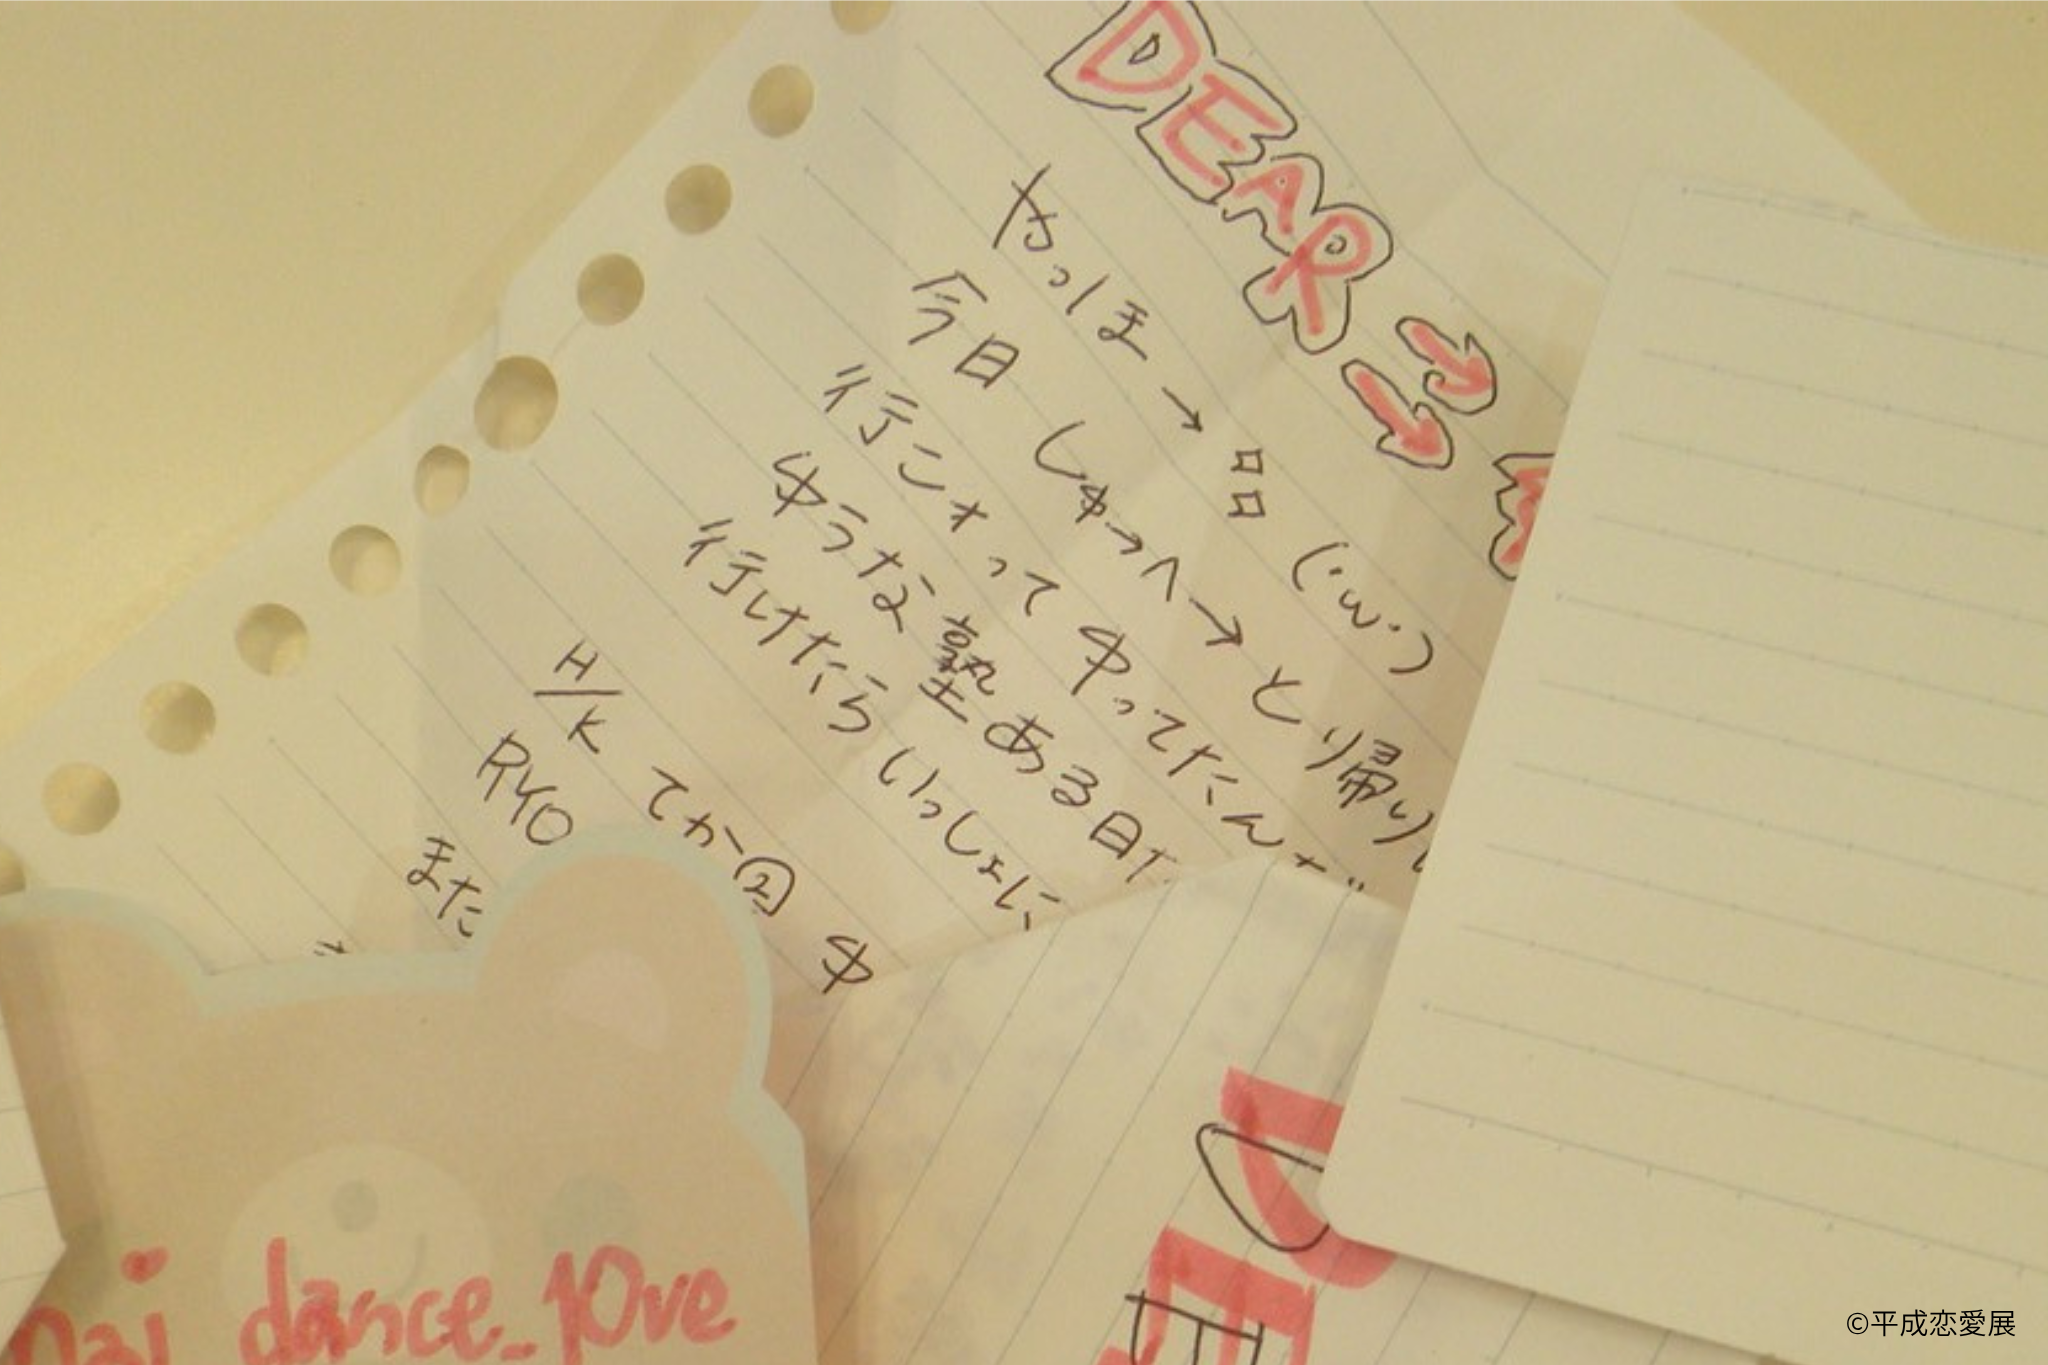 DEAR →→
やっほ→ 口口 (・ω・)
今日 しゅ→へ→と帰り
行こォって ゆってたんだ
ゆうな塾ある日だ
行けたら いっしょに
H/K てか②回 ゆ
RYO
また
nai dance_10ve
DE
©平成恋愛展